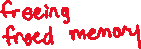 freeing
freed memory